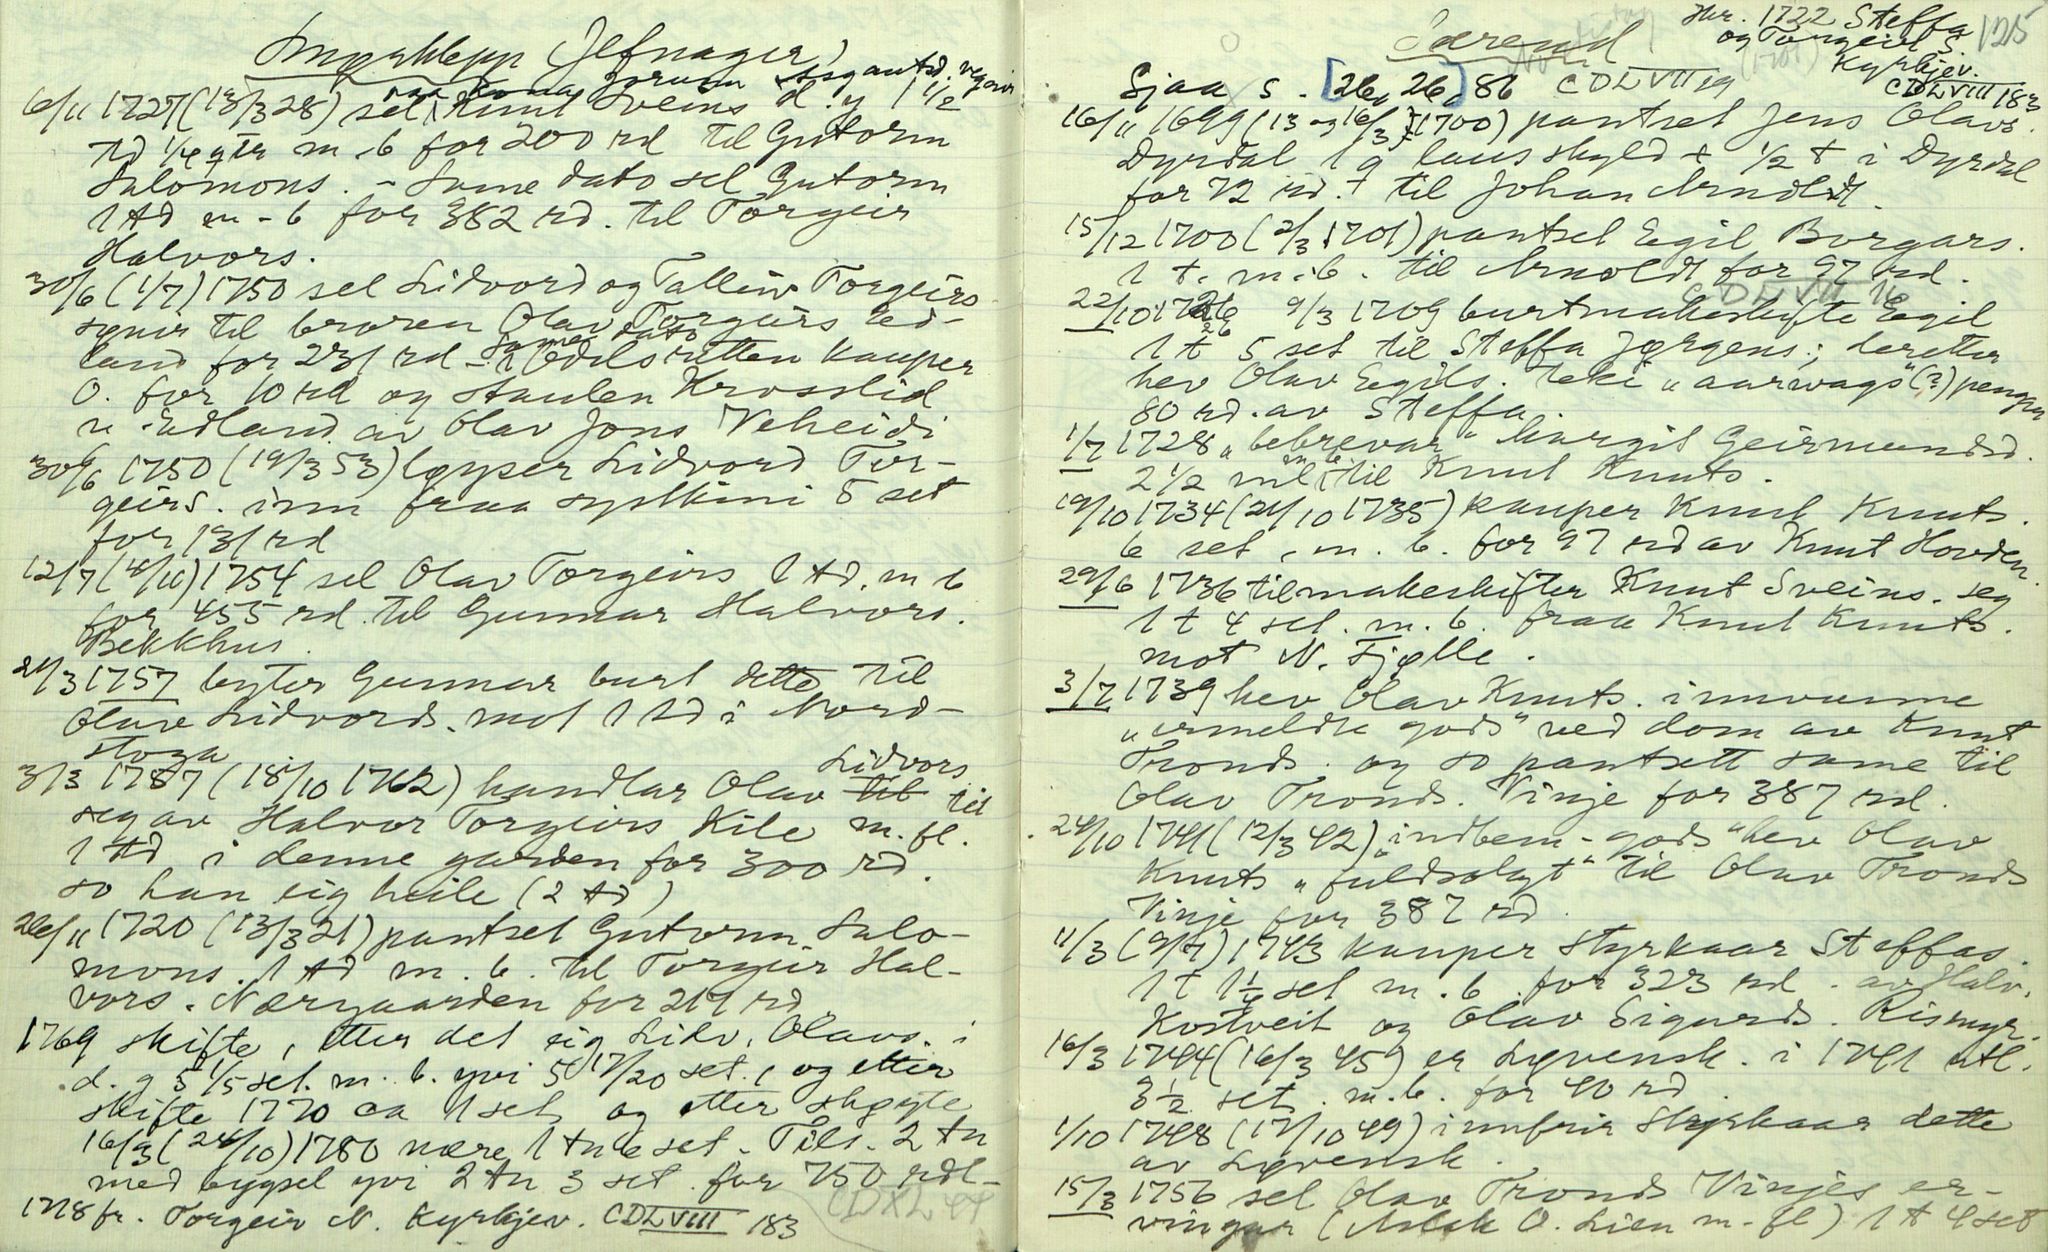 Smørklepp (Jefnager)
paa kona Jorunn Asgautsd. vegair
6/11 1727 (13/3 28) sel Knut Sveins d. y 1 1/2
td 1/4 gtr m-b for 200 rd til Gutorm
Salomons. - Same dato sel Gutorm
1 td m-b for 382 rd. til Torgeir
Halvors.
30/6 (1/7) 1750 sel Lidvord og Talleiv Torgeirs
synir til broren Olav Torgeirs Ed-
land for 231 rd - Same dato Odelsretten kauper
O. for 10 rd og staulen Krosslid
u. Edland av Olav Jons Veheidi
30/6 1750 (19/3 53) løyser Lidvord Tor-
geirs. inn fraa syskini 5 set
for 131 rd
12/7 (18/10) 1754 sel Olav Torgeirs 1 td. m b
for 455 rd. til Gunnar Halvors.
Bekkhus.
21/3 1757 byter Gunnar burt dette til
Olav Lidvords. mot 1 td i Nord-
stoga
3/3 1787 (18/10 1762) handlar Olav Lidvors til
seg av Halvor Torgeirs Kile m. fl.
1 td i denne garden for 300 rd.
so han eig heile (2 td)
26/11 1720 (13/3 21) pantset Gutorm Salo-
mons. 1 td m. b. til Torgeir Hal-
vors. Nørgaarden for 217 rd
1769 skifte, etter det eig Lidv. Olavs. i
d. g 5 1/5 set. m. b. yvi 5 17/20 set., og etter
skifte 1770 aa 1 set, og etter skøyte
16/9 (24/10) 1780 nære 1 tn 6 set. Tils. 2 tn
med bygsel yvi 2 tn 3 set for 750 rdl-
1728 fr. Torgeir N. Kyrkjev. CDLVIII 183
CDXL 44
Hr. 1722 Steffa
og Torgeir S.
Kyrkjev.
CDLVIII 183
125
Sjaa s. [26, 26] 86 CDLVII 19
16/11 1699 (13 og 16/3 1700) pantset Jens Olavs.
Dyrdal 1 g laus skyld + 1/2 t i Dyrdal
for 72 rd. til Johan Arnoldt.
15/12 1700 (2/3 1701) pantset Egil Borgars.
1 t. m. b. til Arnoldt for 97 rd.
CDLVIII 16
22/10 1726 9/3 1709 burtmakeskifte Egil
1 t 5 set til Steffa Jørgens; deretter
hev Olav Egils. teki "aarwags" (?) pengar
80 rd. av Steffa.
1/7 1728 "bebrevar" Margit Geirmundsd.
2 1/2 ml m b til Knut Knuts.
19/10 1734 (21/10 1735) kauper Knut Knuts.
6 set, m. b. for 97 rd av Knut Hovden.
29/6 1736 tilmakeskifter Knut Sveins. seg
1 t 4 set. m. b. fraa Knut Knuts.
mot N. Fjølle.
3/7 1739 hev Olav Knuts. innvunne
"ermeldte gods" ved dom av Knut
Tronds. og so pantsett same til
Olav Tronds. Vinje for 387 rd.
24/10 1741 (12/3 42) "indbem-gods" hev Olav
Knuts "fuldsolgt" til Olav Tronds
Vinje for 387 rd.
11/3 (9/7) 1743 kauper Styrkaar Steffas.
1 t 1 1/4 set m. b. for 323 rd. av Halv.
Kostveit og Olav Sigurds. Rismyr.
16/3 1744 (16/3 45) er Løvensk. i 1741 utl.
3 1/2 set. m. b. for 40 rd.
1/10 1748 (17/10 49) innfrir Styrkaar dette
av Løvensk.
15/3 1756 sel Olav Tronds Vinjes er-
vingar (Aslak O. Lien m-fl) 1 t 4 set